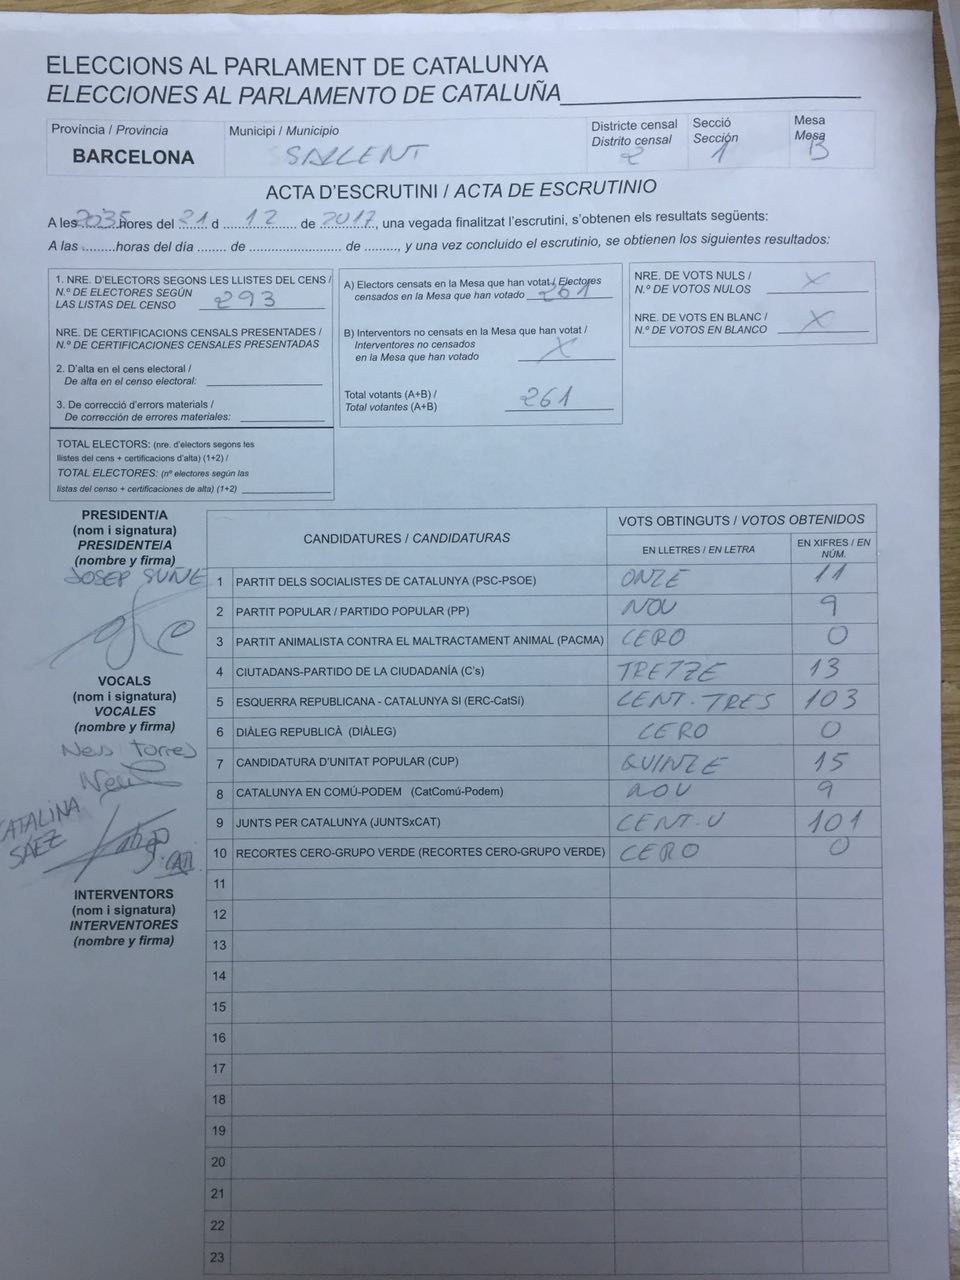 ELECCIONS AL PARLAMENT DE CATALUNYA
ELECCIONES AL PARLAMENTO DE CATALUÑA
Província / Provincia
BARCELONA
Municipi / Municipio
SALLENT
Districte censal
Distrito censal
2
Secció
Sección
1
Mesa
Mesa
B
ACTA D'ESCRUTINI / ACTA DE ESCRUTINIO
A les 2035 hores del 21 d 12 de 2017, una vegada finalitzat l'escrutini, s'obtenen els resultats següents:
A las ........horas del día ....... de ...................... de ........, y una vez concluido el escrutinio, se obtienen los siguientes resultados:
1. NRE. D'ELECTORS SEGONS LES LLISTES DEL CENS /
N.º DE ELECTORES SEGÚN
LAS LISTAS DEL CENSO 293
NRE. DE CERTIFICACIONS CENSALS PRESENTADES /
N.º DE CERTIFICACIONES CENSALES PRESENTADAS
2. D'alta en el cens electoral /
De alta en el censo electoral:
3. De correcció d'errors materials /
De corrección de errores materiales:
TOTAL ELECTORS: (nre. d'electors segons les
llistes del cens + certificacions d'alta) (1+2) /
TOTAL ELECTORES: (nº electores según las
listas del censo + certificaciones de alta) (1+2)
A) Electors censats en la Mesa que han votat / Electores
censados en la Mesa que han votado 261
B) Interventors no censats en la Mesa que han votat /
Interventores no censados
en la Mesa que han votado X
Total votants (A+B) /
Total votantes (A+B) 261
NRE. DE VOTS NULS /
N.º DE VOTOS NULOS X
NRE. DE VOTS EN BLANC /
N.º DE VOTOS EN BLANCO X
PRESIDENT/A
(nom i signatura)
PRESIDENTE/A
(nombre y firma)
JOSEP SUNE
VOCALS
(nom i signatura)
VOCALES
(nombre y firma)
Neus Torres
CATALINA
SAEZ
INTERVENTORS
(nom i signatura)
INTERVENTORES
(nombre y firma)
CANDIDATURES / CANDIDATURAS
VOTS OBTINGUTS / VOTOS OBTENIDOS
EN LLETRES / EN LETRA
EN XIFRES / EN
NÚM.
1 PARTIT DELS SOCIALISTES DE CATALUNYA (PSC-PSOE) ONZE 11
2 PARTIT POPULAR / PARTIDO POPULAR (PP) NOU 9
3 PARTIT ANIMALISTA CONTRA EL MALTRACTAMENT ANIMAL (PACMA) CERO 0
4 CIUTADANS-PARTIDO DE LA CIUDADANÍA (C's) TRETZE 13
5 ESQUERRA REPUBLICANA - CATALUNYA SI (ERC-CatSí) CENT. TRES 103
6 DIÀLEG REPUBLICÀ (DIÀLEG) CERO 0
7 CANDIDATURA D'UNITAT POPULAR (CUP) QUINZE 15
8 CATALUNYA EN COMÚ-PODEM (CatComú-Podem) NOU 9
9 JUNTS PER CATALUNYA (JUNTSxCAT) CENT. U 101
10 RECORTES CERO-GRUPO VERDE (RECORTES CERO-GRUPO VERDE) CERO 0
11
12
13
14
15
16
17
18
19
20
21
22
23